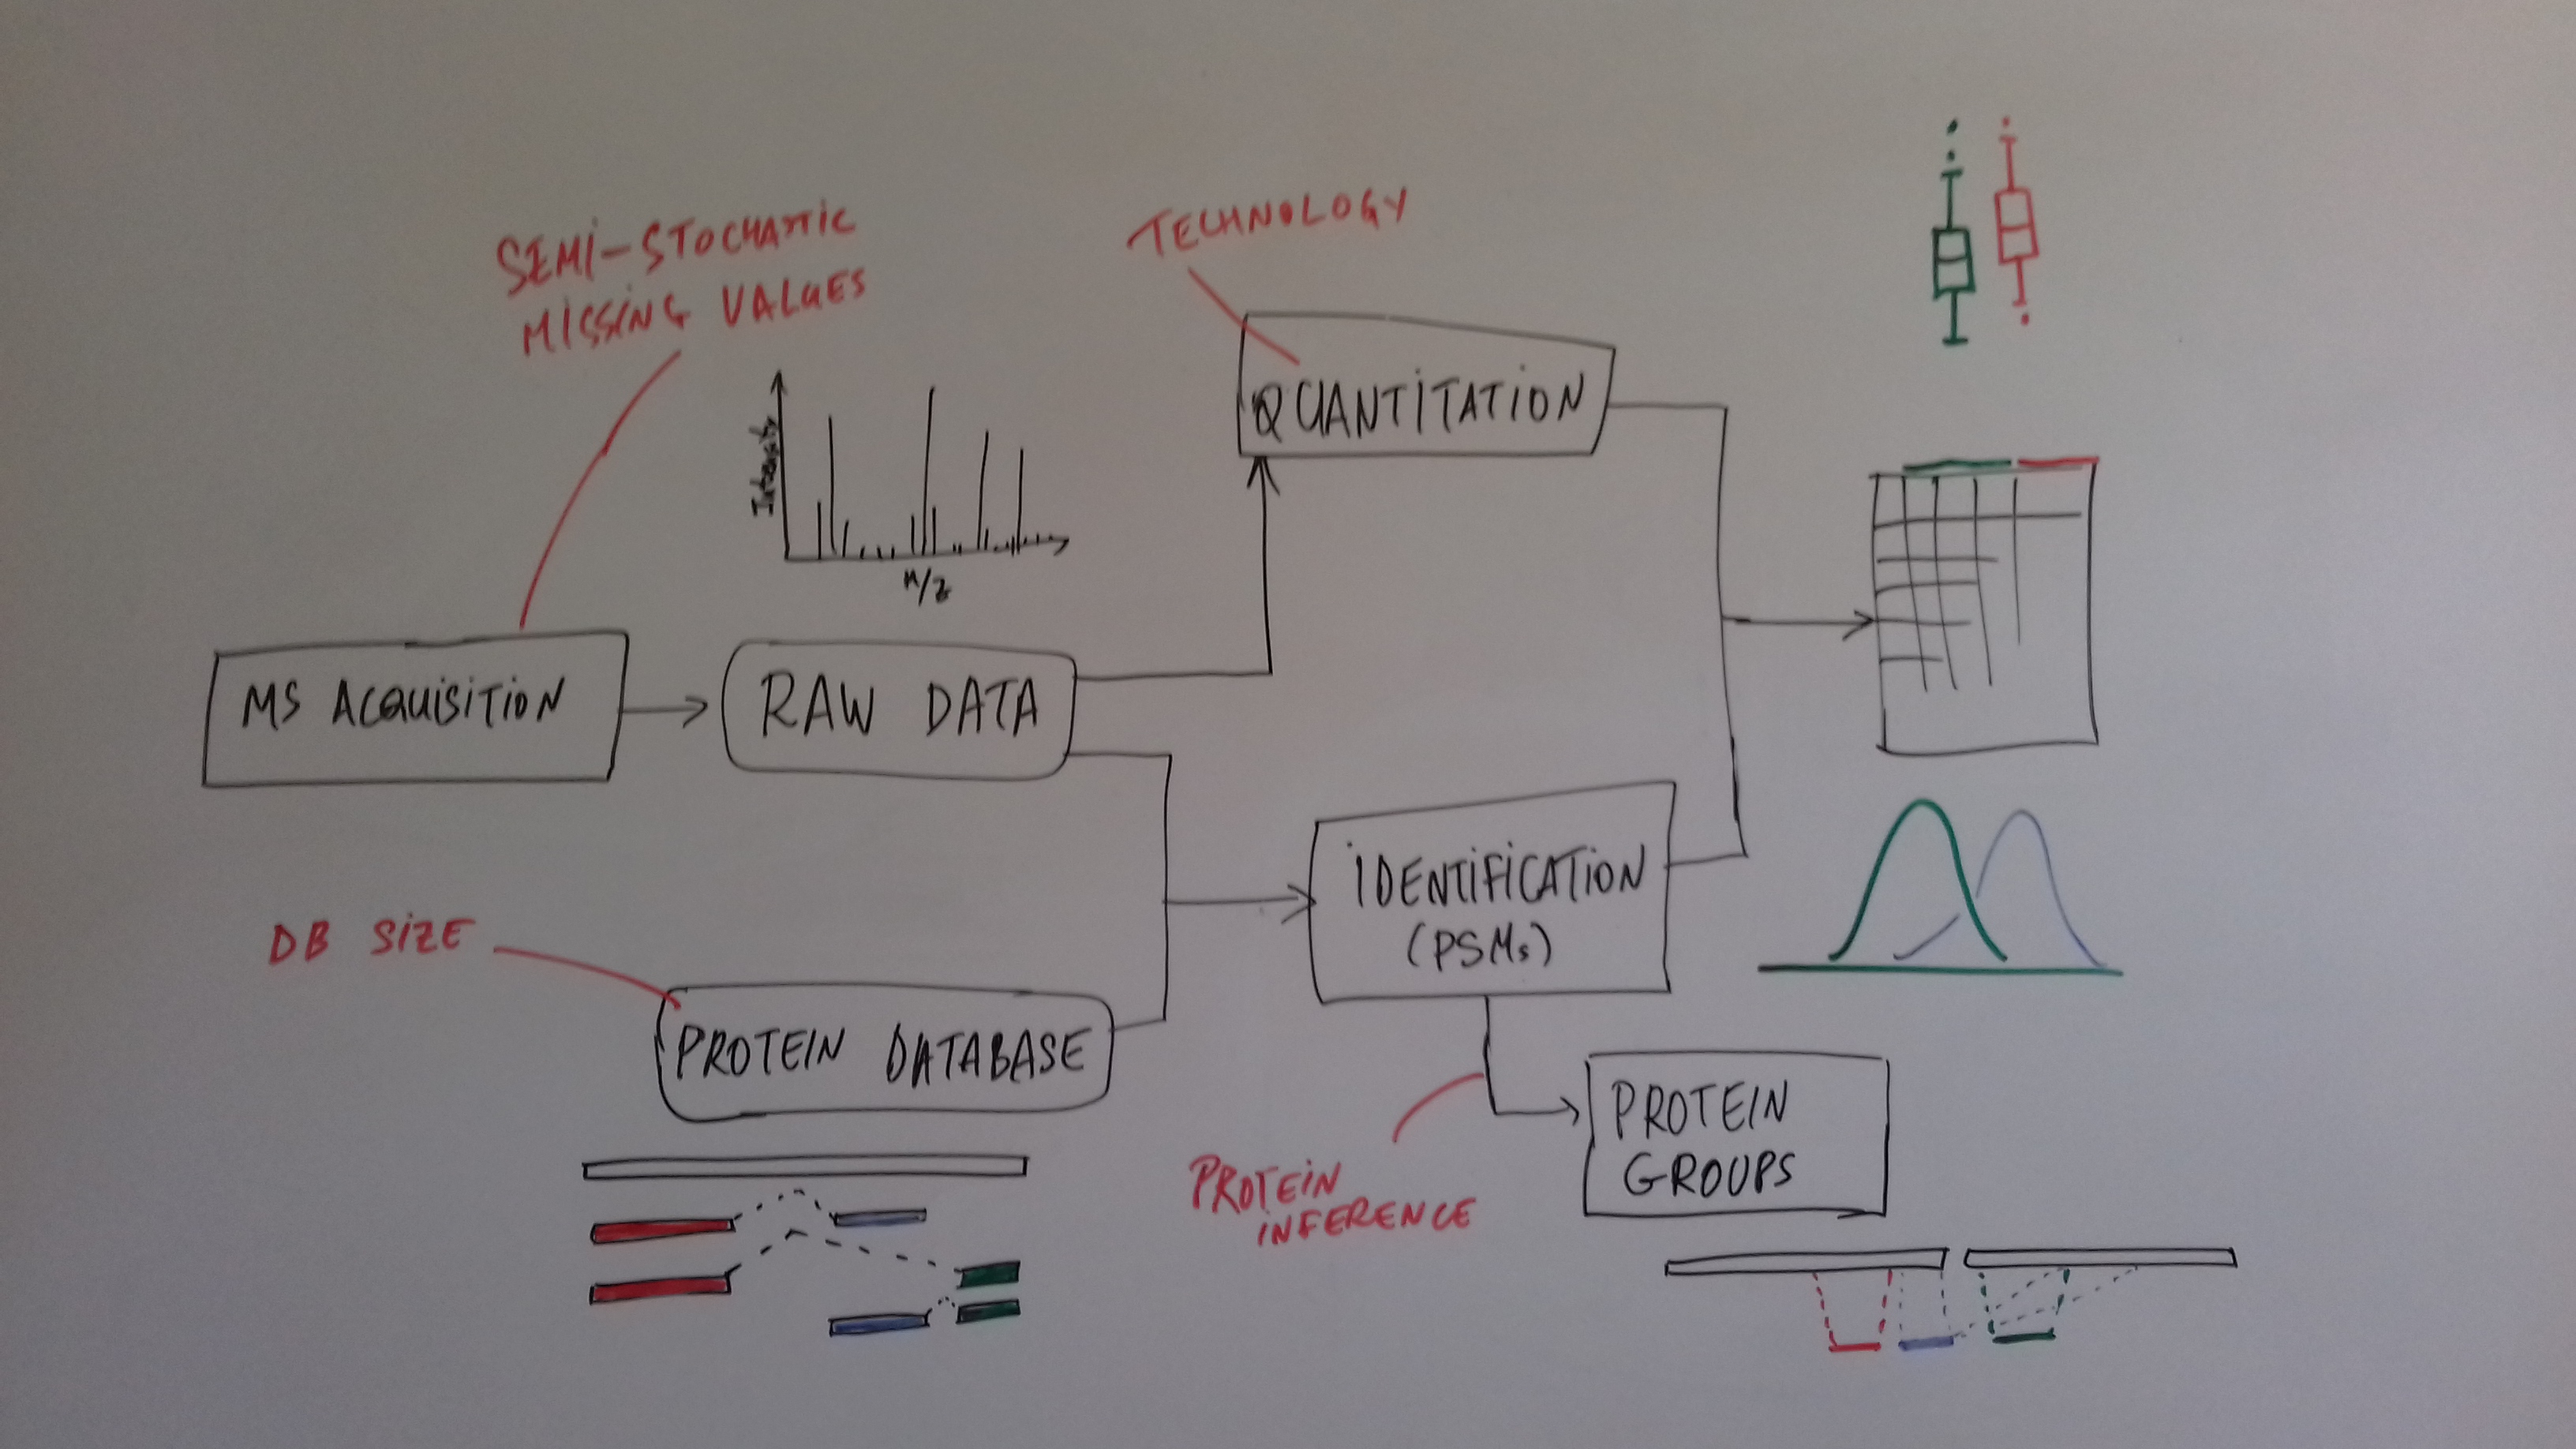 SEMI-STOCHASTIC
MISSING VALUES
TECHNOLOGY
QUANTITATION
Intensity
m/z
MS ACQUISITION
RAW DATA
IDENTIFICATION
(PSMs)
DB SIZE
PROTEIN DATABASE
PROTEIN
INFERENCE
PROTEIN
GROUPS